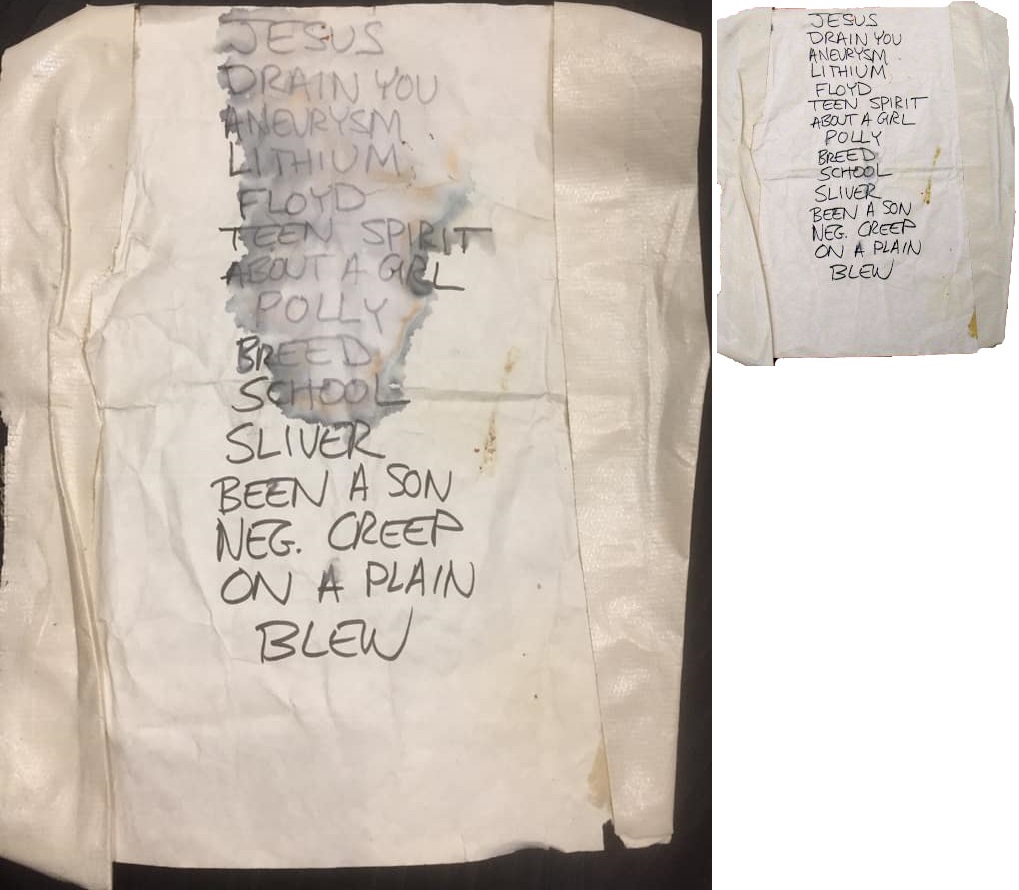 JESUS
DRAIN YOU
ANEURYSM
LITHIUM
FLOYD
TEEN SPIRIT
ABOUT A GIRL
POLLY
BREED
SCHOOL
SLIVER
BEEN A SON
NEG. CREEP
ON A PLAIN
BLEW
JESUS
DRAIN YOU
ANEURYSM
LITHIUM
FLOYD
TEEN SPIRIT
ABOUT A GIRL
POLLY
BREED
SCHOOL
SLIVER
BEEN A SON
NEG. CREEP
ON A PLAIN
BLEW